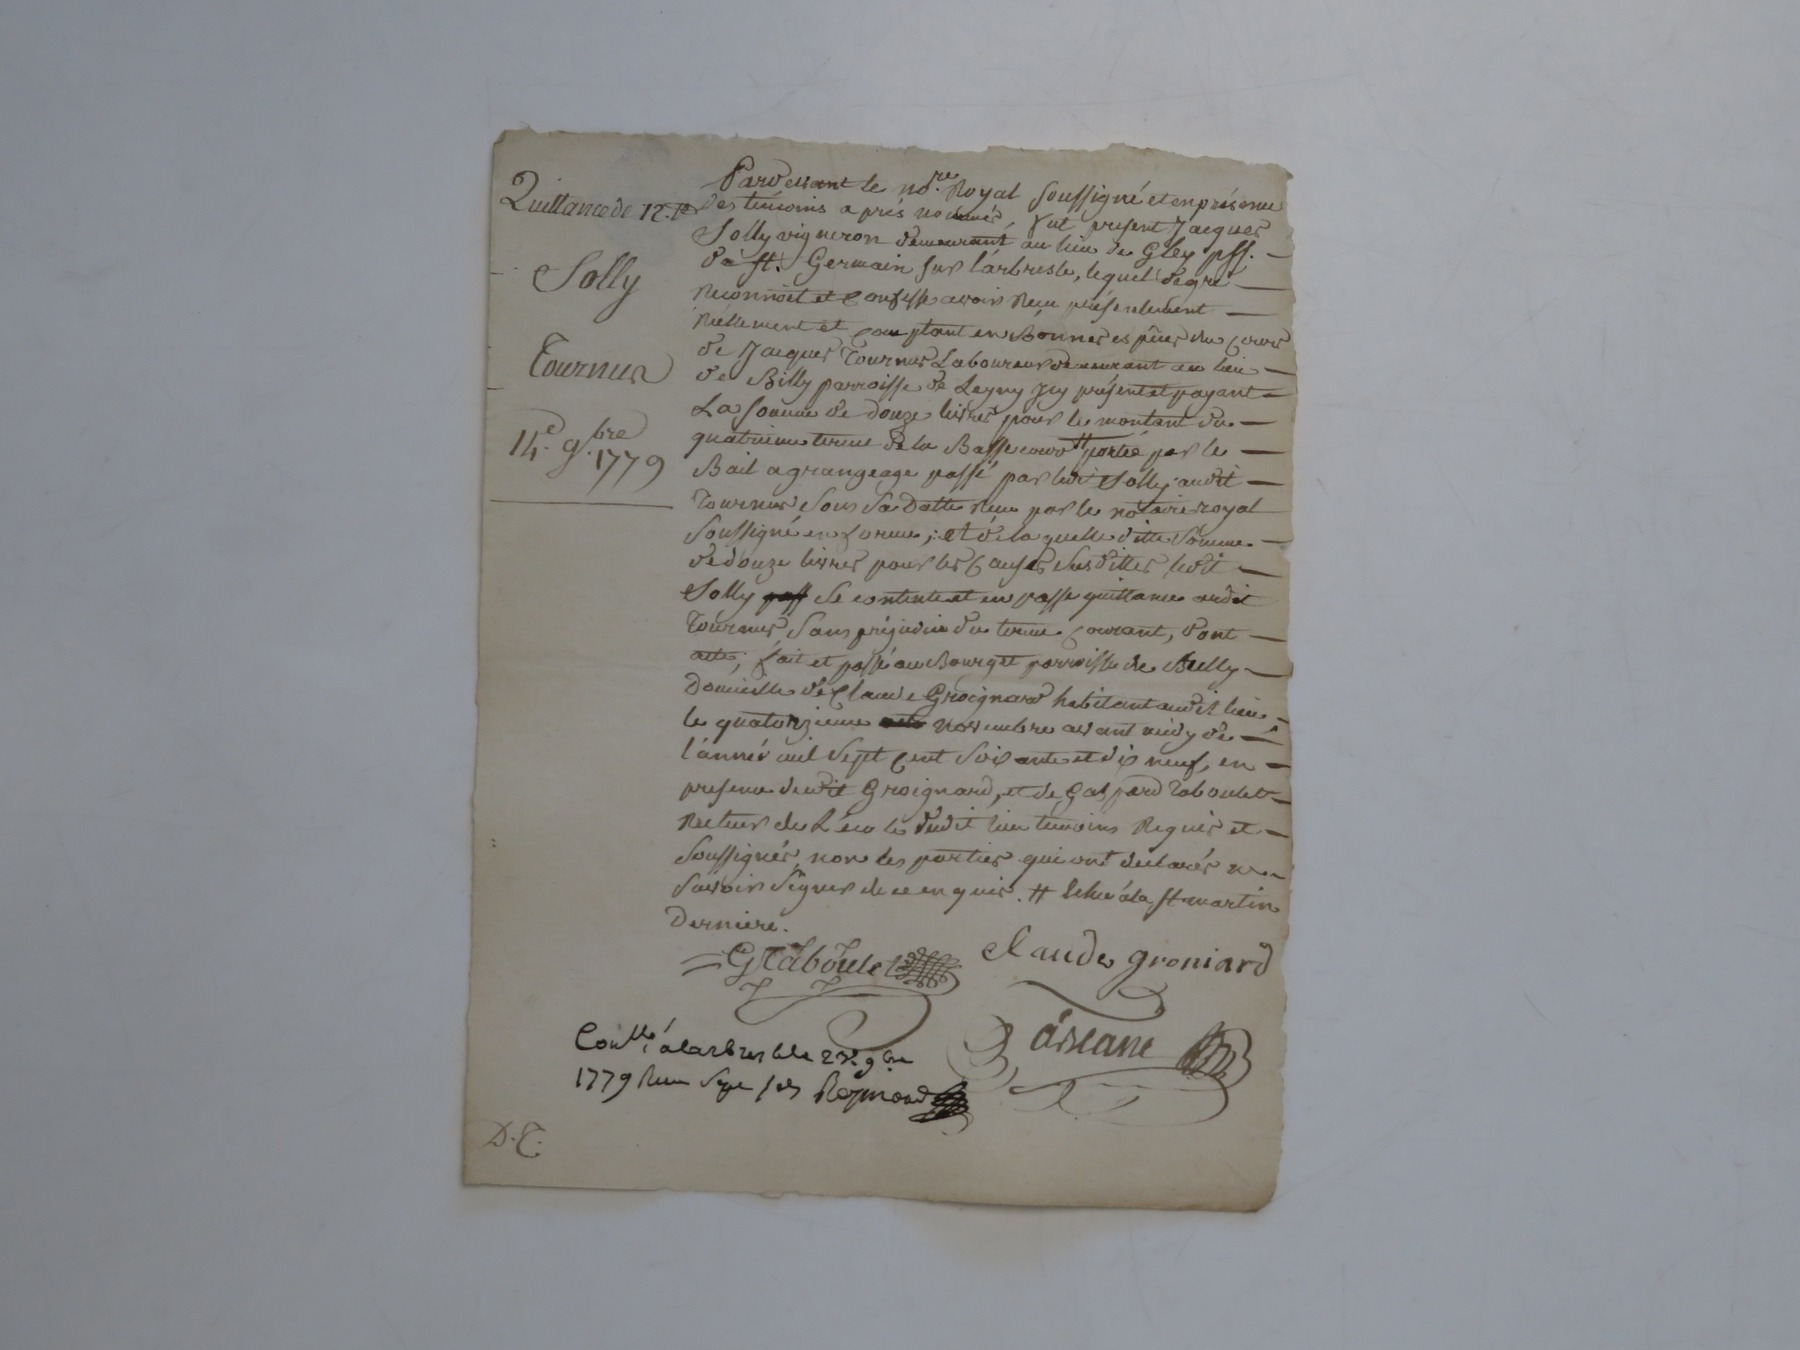 Quittance de 12.lt
Solly
Tournus
14.e 9.bre
1779
Pardevant le no.re Royal soussigné et en présence
des temoins après nommés, fut present Jacques
Solly vigneron demeurant au lieu de Gley pss.
de st. Germain sur l'arbresle, lequel degré
Reconnoit et confesse avoir Reçu présentement
Réellement et comptant en Bonnes espèces du cours
de Jacques Tournus Laboureur demeurant au lieu
de Billy parroisse de Legny Icy présent et payant
La somme de douze livres pour le montant du
quatrieme terme de la Bassecour # portée par le
Bail a grangeage passé par ledit Solly audit
Tournus sous sa Datte reçu par le notaire royal
soussigné en forme; et de la quelle ditte somme
de douze livres pour les causes susdittes, ledit
Solly se contente et en passe quittance audit
Tournus, sans préjudice du terme courant, dont
acte; fait et passé au Bourg et parroisse de Bully
Domicille de Claude Groignard habitant audit lieu,
le quatorzieme novembre avant midy de
l'année mil sept cent soixante et dix neuf, en
presence dudit Groignard, et de Gaspard Taboulet
Recteur de L'école dudit lieu temoins Requis et
soussignés, non les parties qui ont declarés ne
savoir signer de ce enquis. # Echue à la st martin
Derniere.
G Taboulet
Claude groniard
Con.lle à larbresle le 9.bre
1779 Reçu sept sols Reymond
D.T.